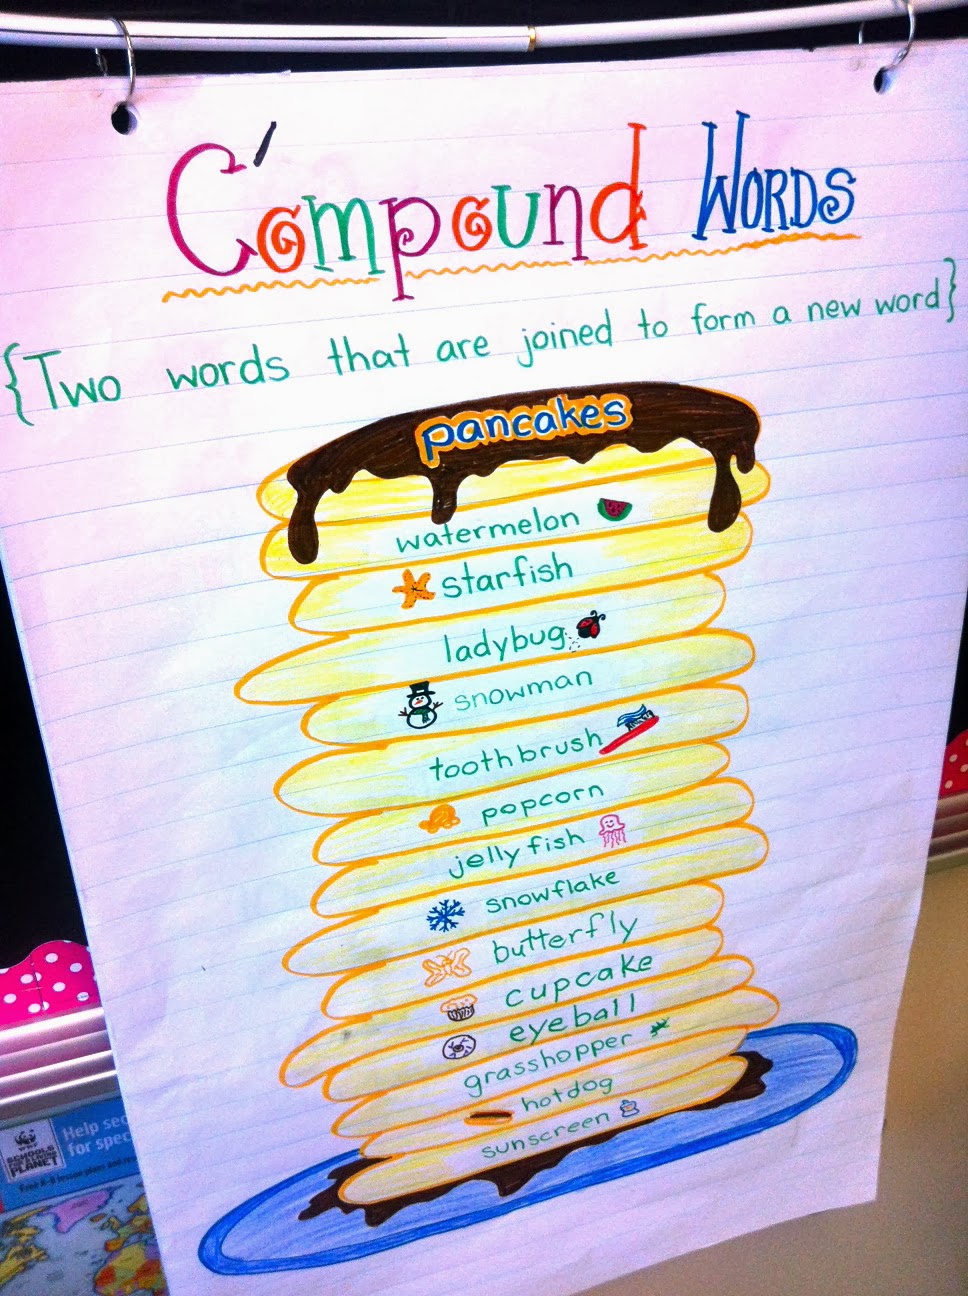 Compound Words
{Two words that are joined to form a new word}
pancakes
watermelon
starfish
ladybug
snowman
toothbrush
popcorn
jellyfish
snowflake
butterfly
cupcake
eyeball
grasshopper
hotdog
sunscreen
WWF
PLANET
Help sec
for spec